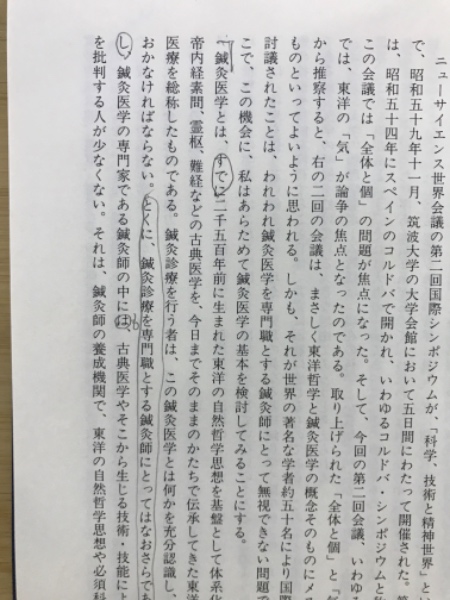 ニューサイエンス世界会議の第二回国際シンポジウムが、「科学、技術と精神世界」と
で、昭和五十九年十一月、筑波大学の大学会館において五日間にわたって開催された。第
は、昭和五十四年にスペインのコルドバで開かれ、いわゆるコルドバ・シンポジウムと称
この会議では「全体と個」の問題が焦点になった。そして、今回の第二回会議、いわゆ
では、東洋の「気」が論争の焦点となったのである。取り上げられた「全体と個」と「気
から推察すると、右の二回の会議は、まさしく東洋哲学と鍼灸医学の概念そのものにメ
ものといってよいように思われる。しかも、それが世界の著名な学者約五十名により国際
討議されたことは、われわれ鍼灸医学を専門職とする鍼灸師にとって無視できない問題で
こで、この機会に、私はあらためて鍼灸医学の基本を検討してみることにする。
鍼灸医学とは、すでに二千五百年前に生まれた東洋の自然哲学思想を基盤として体系化
帝内経素問、霊枢、難経などの古典医学を、今日までそのままのかたちで伝承してきた東洋
医療を総称したものである。鍼灸診療を行う者は、この鍼灸医学とは何かを充分認識し、
おかなければならない。とくに、鍼灸診療を専門職とする鍼灸師にとってはなおさらであ
し、鍼灸医学の専門家である鍼灸師の中には、古典医学やそこから生じる技術・技能によ
を批判する人が少なくない。それは、鍼灸師の養成機関で、東洋の自然哲学思想や必須科